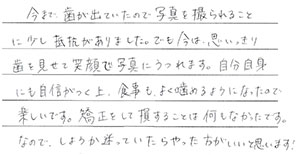 今まで、歯が出ていたので写真を撮られること
に少し抵抗がありました。でも今は、思いっきり
歯を見せて笑顔で写真にうつれます。自分自身
にも自信がつく上、食事も、よく噛めるようになったので
楽しいです。矯正をして損することは何もなかったです。
なので、しようか迷っていたらやった方がいいと思います!